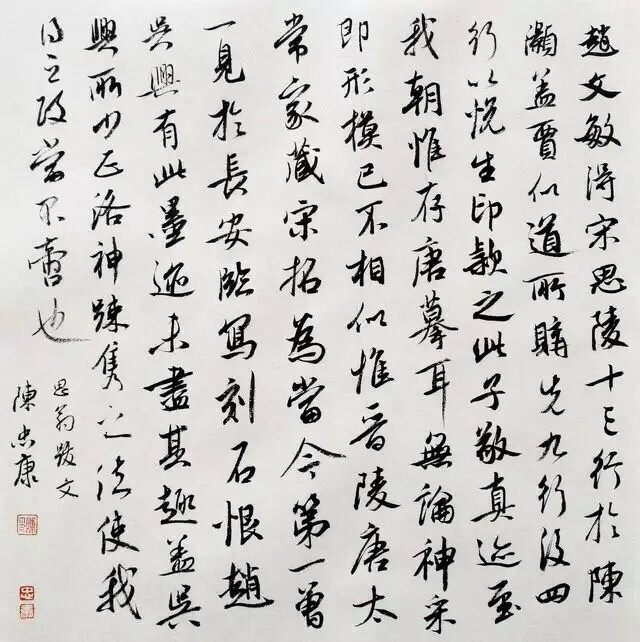 趙文敏得宋思陵十三行於陳
灝蓋賈似道所購先九行後四
行以悅生印款之此子敬真迹至
我朝惟存唐摹耳無論神采
即形模已不相似惟晉陵唐太
常家藏宋拓為當今第一曾
一見於長安臨寫刻石恨趙
吳興有此墨迹未盡其趣蓋吳
興所少正洛神疎雋之法使我
得之政當不啻也
思翁跋文
陳忠康